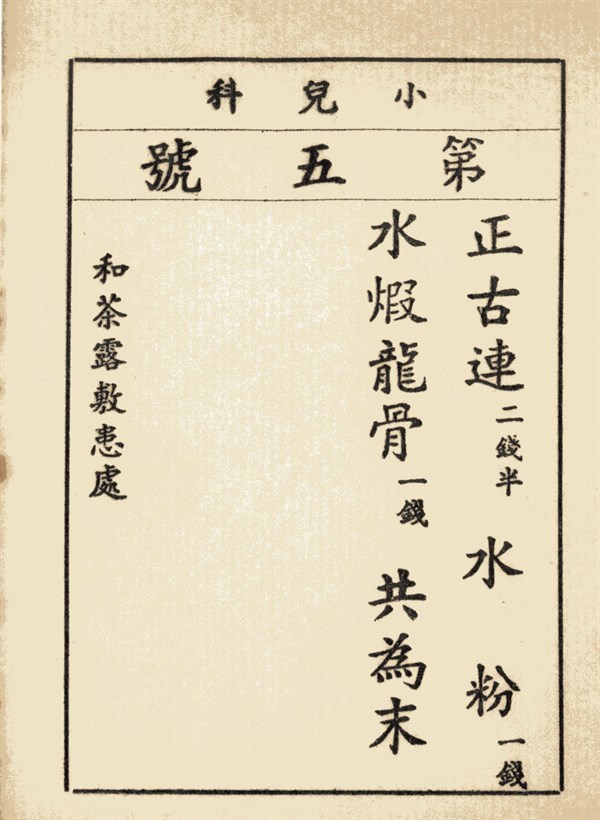 小兒科
第五號
正古連二錢半 水粉一錢
水煆龍骨一錢 共為末
和茶露敷患處